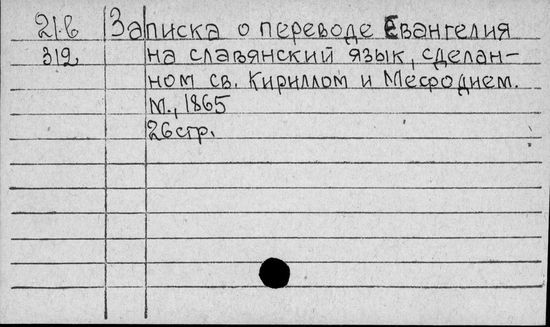 21.в Записка о переводе Евангелия
312 на славянский язык, сделан-
ном св. Кириллом и Мефодием.
М., 1865
26стр.